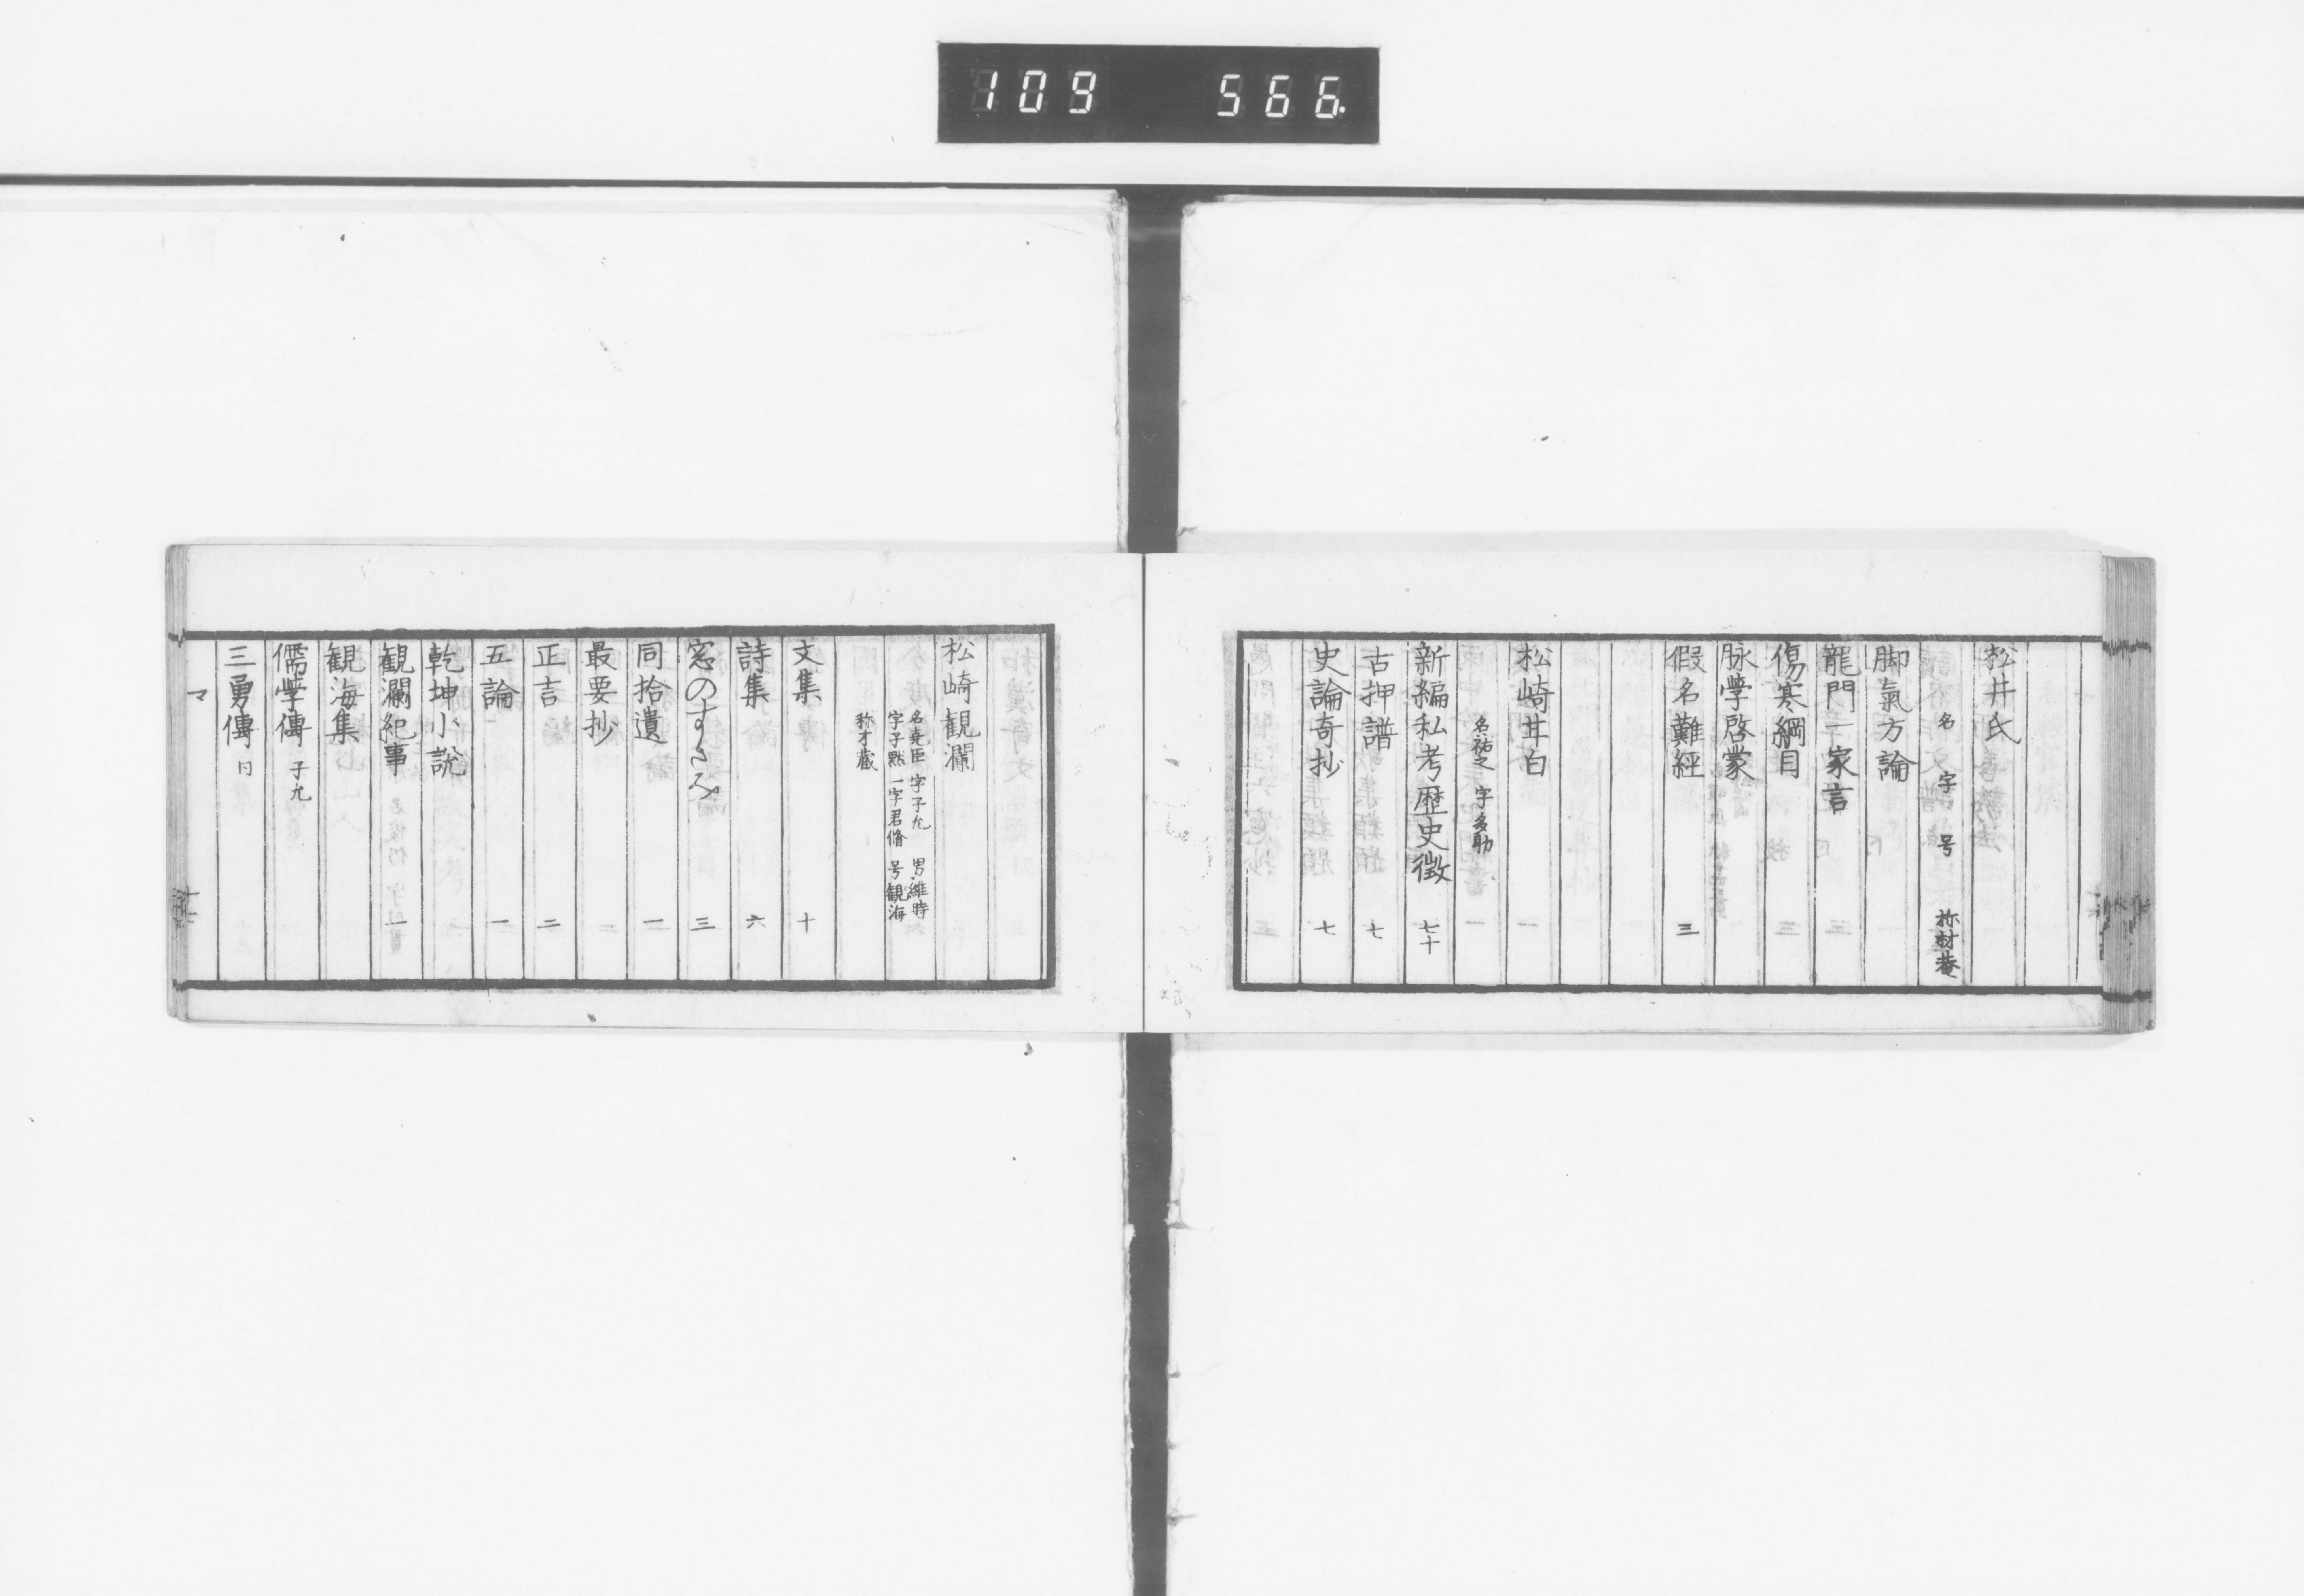 109 566
松井氏
名 字 号 称材菴
脚氣方論
龍門一家言
傷寒綱目
脉學啓蒙
假名難經 三
松崎甘白 一
名祐之 字多助
新編私考歴史徴 七十
古押譜 七
史論奇抄 七
松崎観瀾
名堯臣 字子允 男維時
字子黙 一字君脩 号観海
称才蔵
文集 十
詩集 六
窓のすさみ 三
同拾遺 一
最要抄
正言 二
五論 一
乾坤小説
観瀾紀事 一
観海集
儒學傳 子允
三勇傳 同
マ